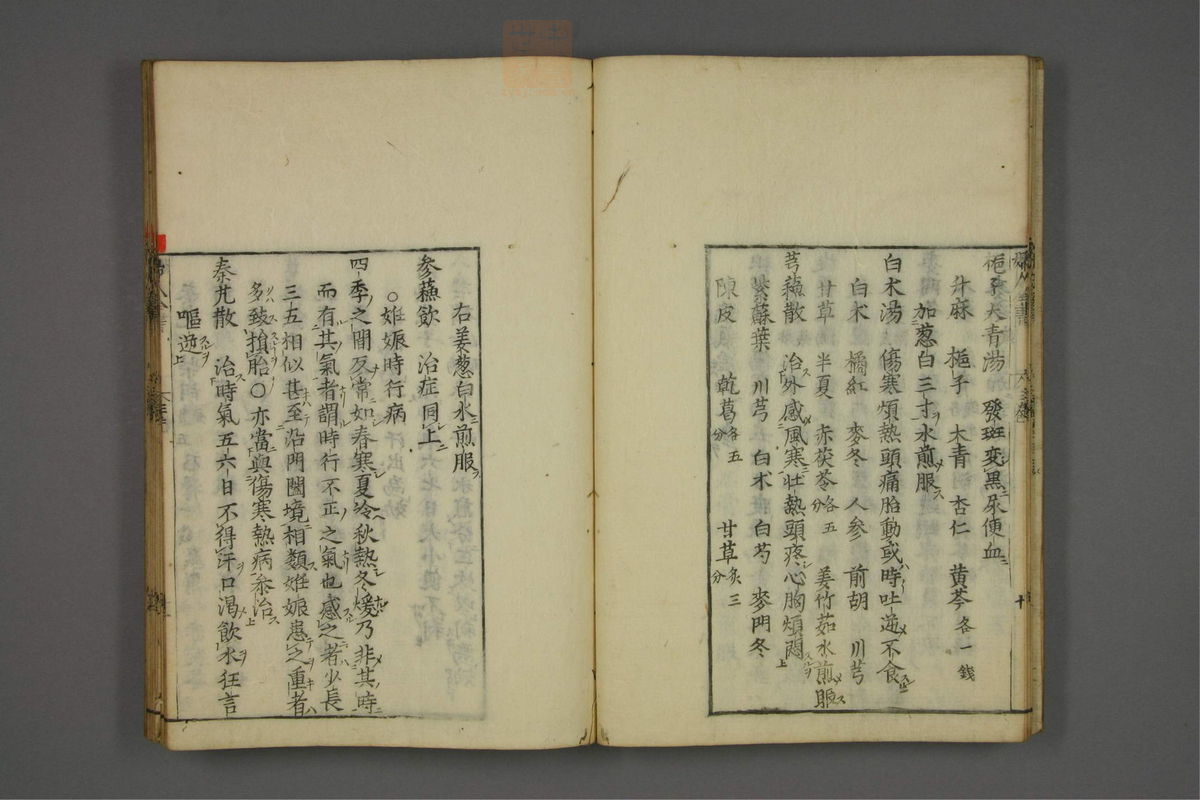 梔子大青湯　發斑変黒尿便血ニ
升麻　梔子　大青　杏仁　黄芩各一錢
加葱白三寸水煎服ス
白朮湯　傷寒煩熱頭痛胎動或時吐逆不食
白朮　橘紅　麥冬　人參　前胡　川芎
甘草　半夏　赤茯苓各五分　姜竹茹水煎服
芎蘓散　治外感風寒壯熱頭疼心胸煩悶
紫蘇葉　川芎　白朮　白芍　麥門冬
陳皮　乾葛各五分　甘草炙三分
右姜葱白水煎服
參蘓飲　治症同上
○姙娠時行病
四季之間反常如春寒夏冷秋熱冬煖乃非其時
而有其氣者謂時行不正之氣也感之者少長
三五相似甚至沿門闔境相類姙娠患之重者
多致損胎○亦當與傷寒熱病參治
秦艽散　治時氣五六日不得汗口渴飲水狂言
嘔逆